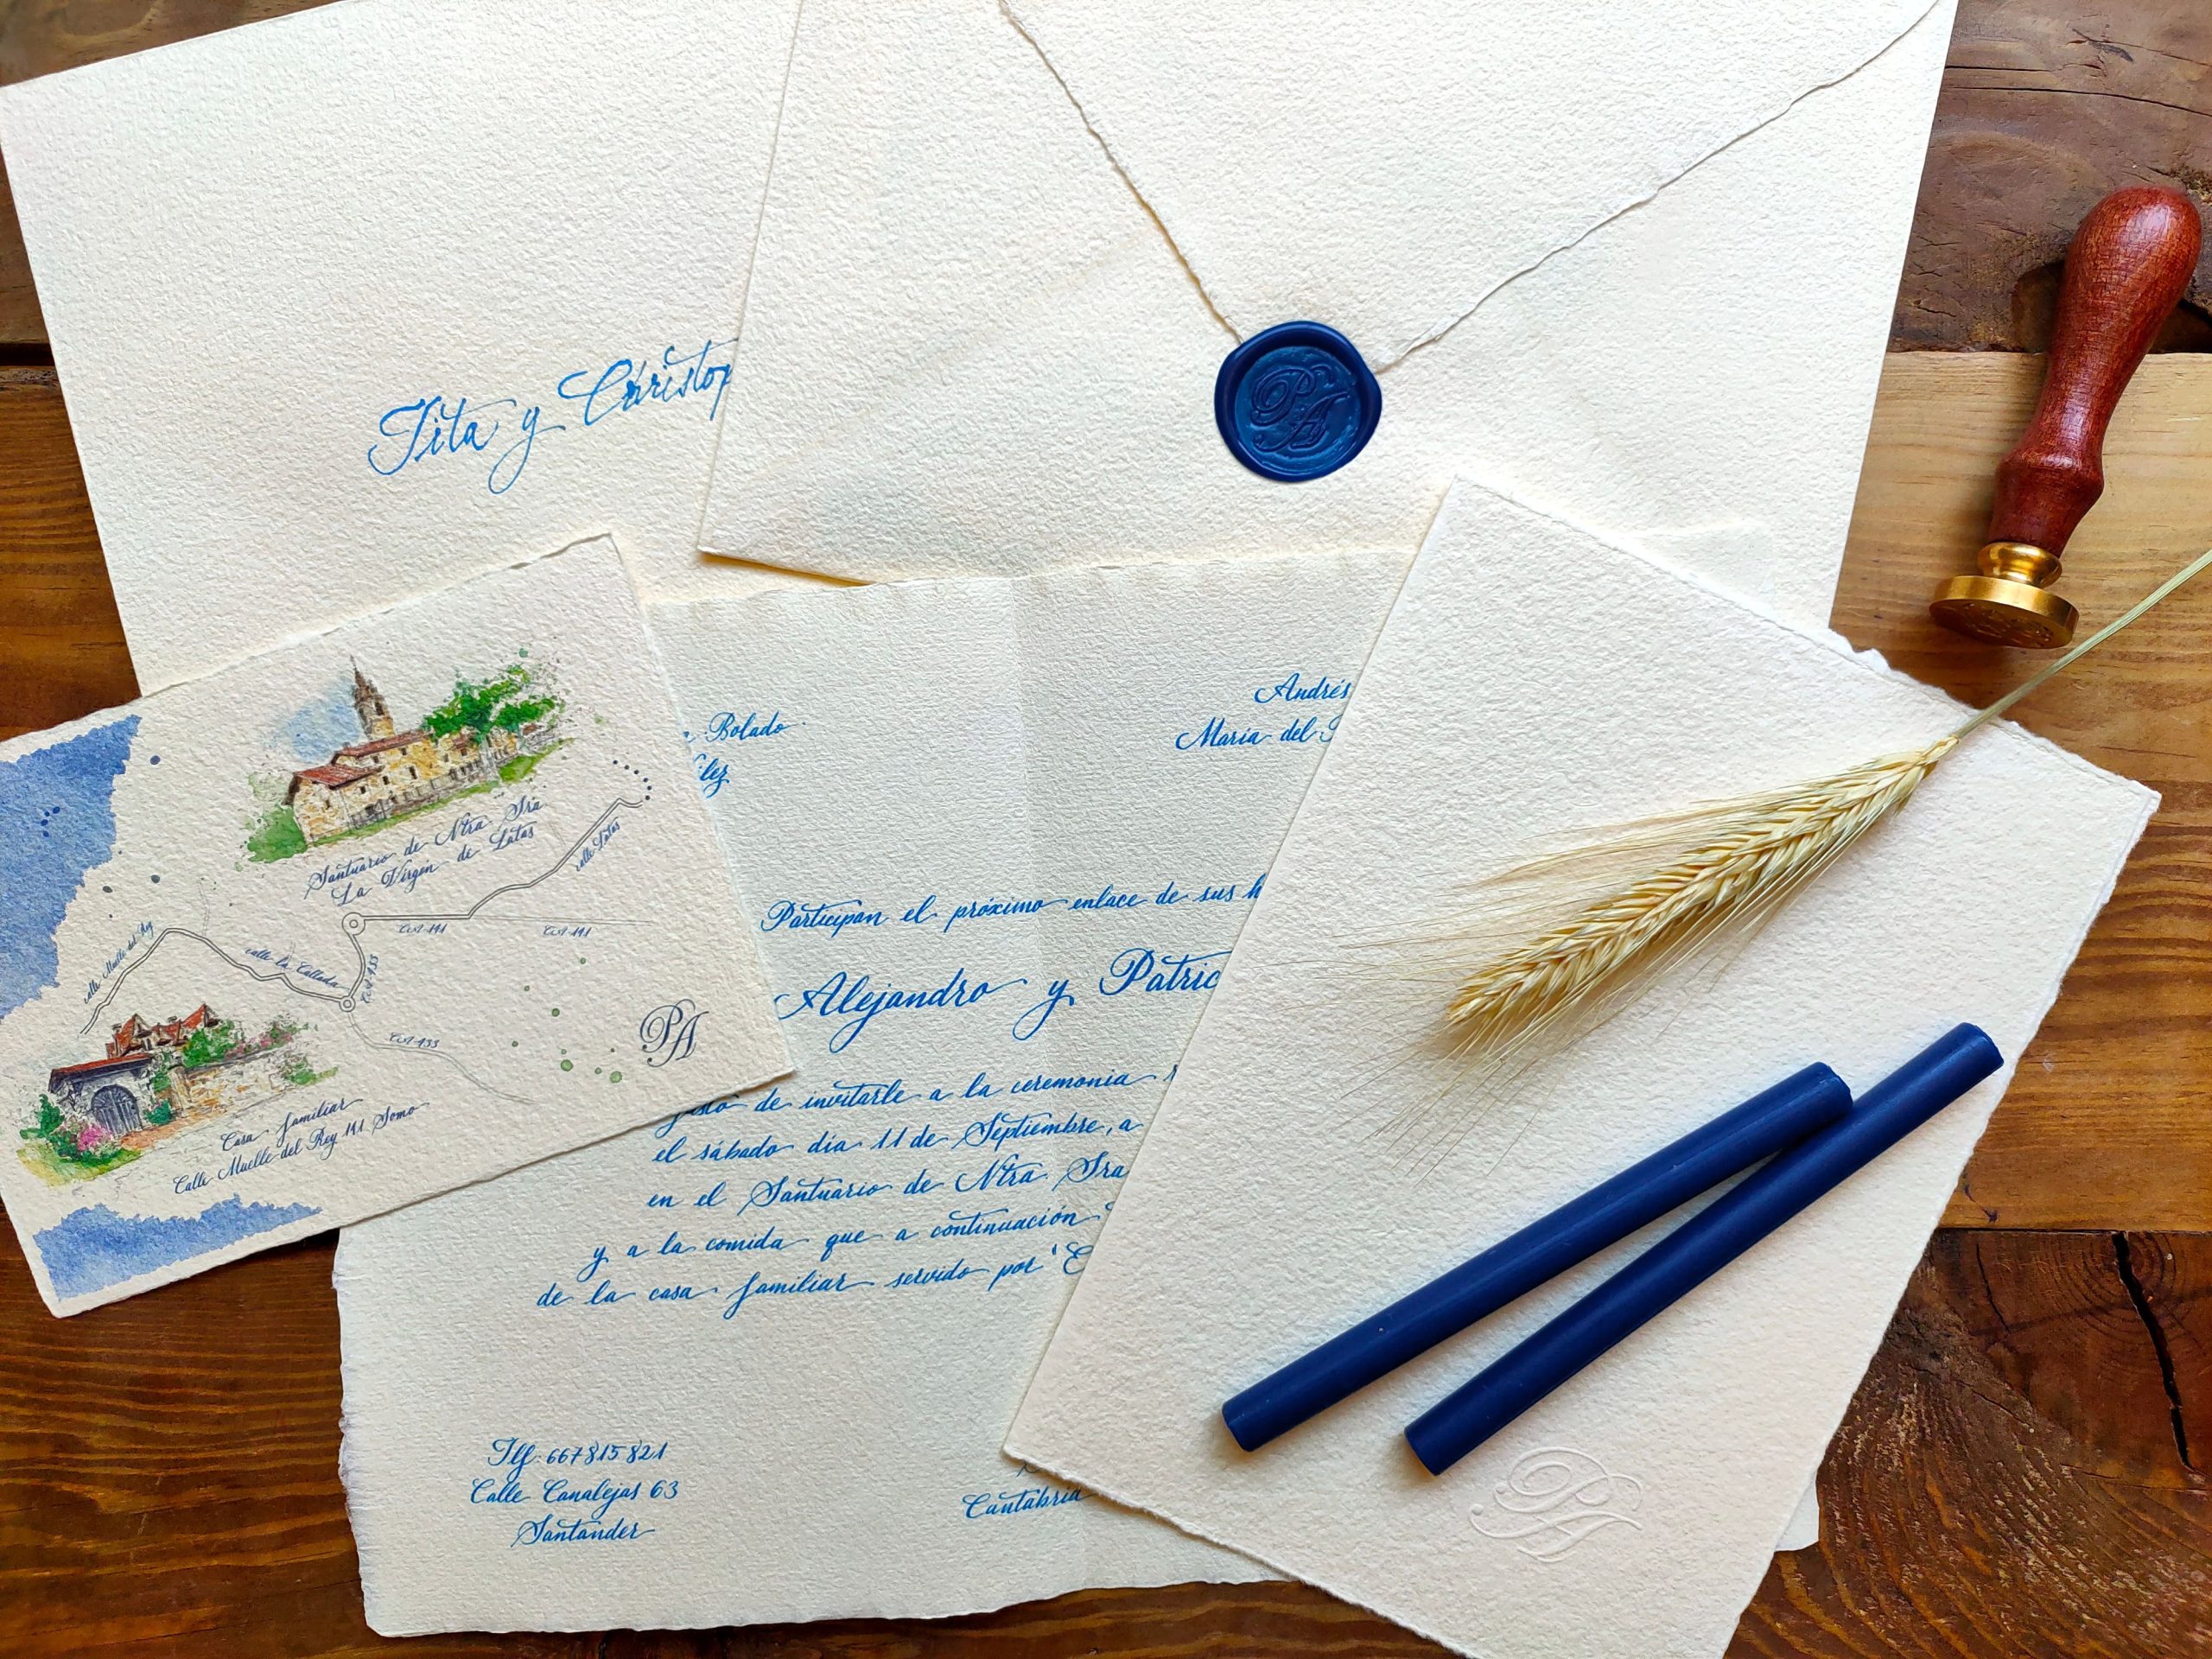 Tita y Christop
PA
Santuario de Ntra. Sra
La Virgen de Latas
calle Latas
calle Muelle del Rey
calle la Callada
CA-141
CA-141
CA-433
CA-433
Casa familiar
Calle Muelle del Rey 141 Somo
PA
Bolado
Andrés
María del
Participan el próximo enlace de sus h
Alejandro y Patric
de invitarle a la ceremonia
el sábado día 11 de Septiembre, a
en el Santuario de Ntra. Sra
y a la comida que a continuación
de la casa familiar servido por 'E
Tlf: 667815821
Calle Canalejas 63
Santander
Cantabria
PA